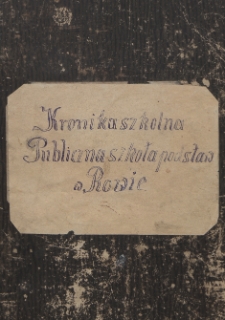 Kronika szkolna
Publiczna szkoła podstaw
w Rowie